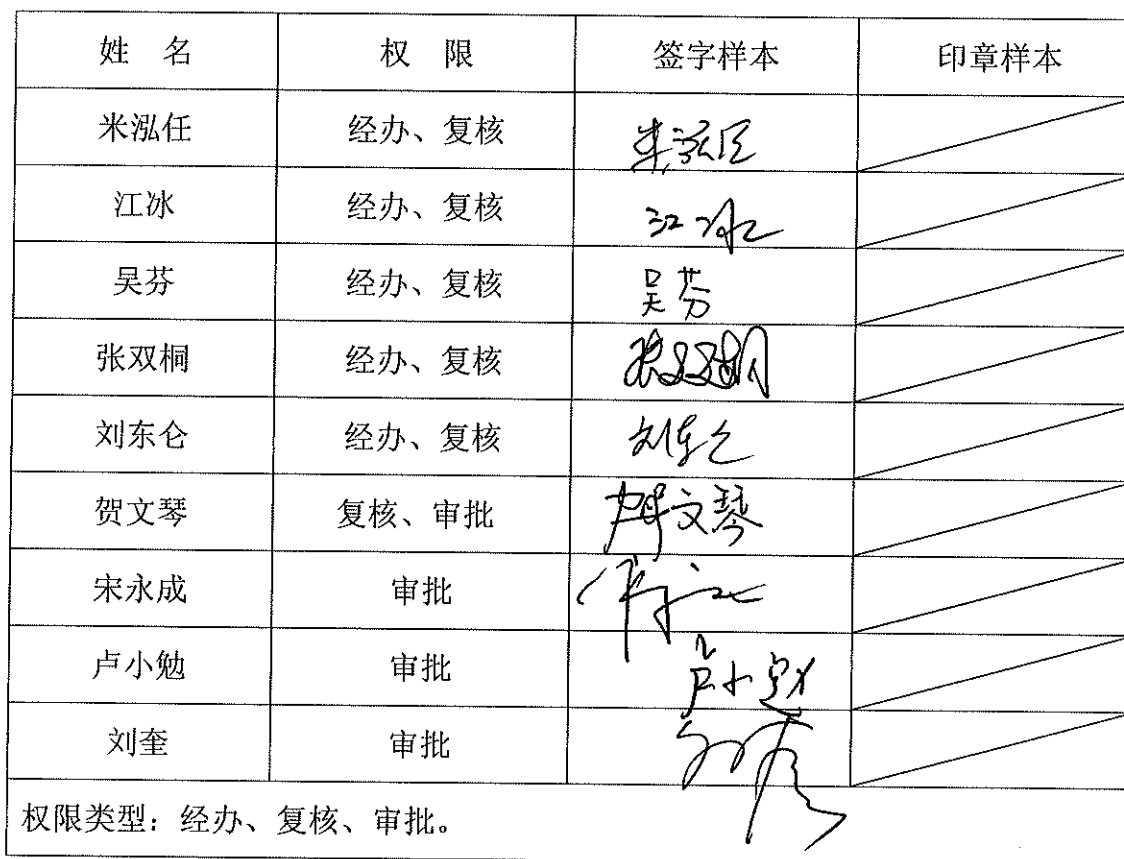 姓 名 权 限 签字样本 印章样本
米泓任 经办、复核 米泓任
江冰 经办、复核 江冰
吴芬 经办、复核 吴芬
张双桐 经办、复核 张双桐
刘东仑 经办、复核 刘东仑
贺文琴 复核、审批 贺文琴
宋永成 审批
卢小勉 审批 卢小勉
刘奎 审批
权限类型：经办、复核、审批。